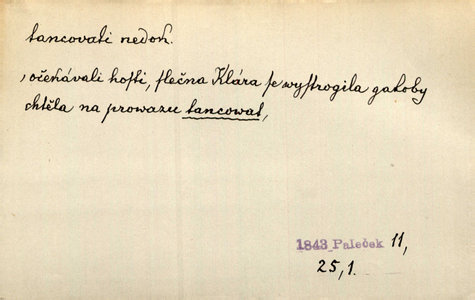 tancovati nedok.
, očekávali hosti, slečna Klára se wystrogila gakoby
chtěla na prowazu tancowat,
1843 Paleček 11,
25,1.